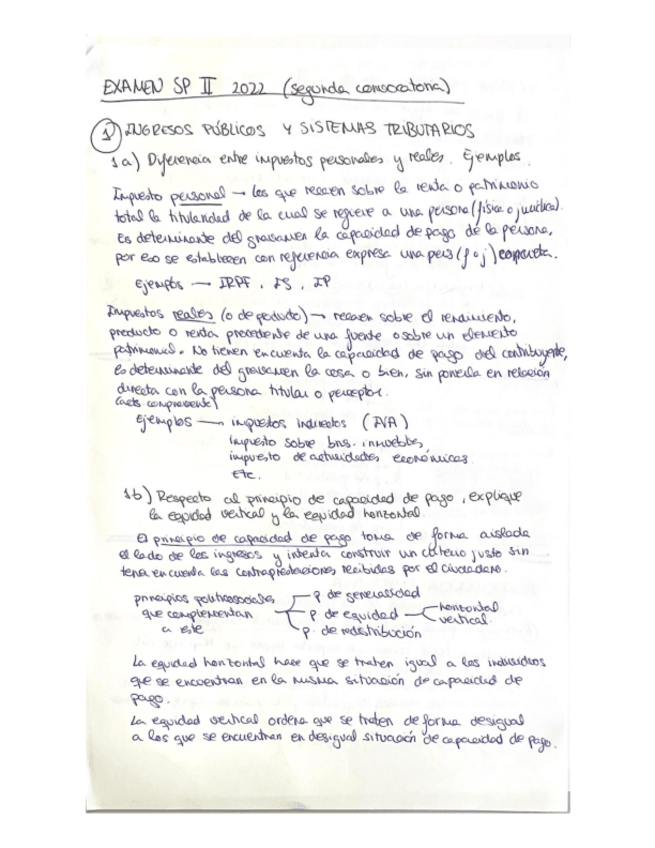 EXAMEN SP II 2022 (segunda convocatoria)
1 INGRESOS PÚBLICOS Y SISTEMAS TRIBUTARIOS
1a) Diferencia entre impuestos personales y reales. Ejemplos.
Impuesto personal → los que recaen sobre la renta o patrimonio
total la titularidad de la cual se refiere a una persona (física o jurídica).
Es determinante del gravamen la capacidad de pago de la persona,
por eso se establecen con referencia expresa una pers (f o j) concreta.
Ejemplos → IRPF, IS, IP
Impuestos reales (o de producto) → recaen sobre el rendimiento,
producto o renta procedente de una fuente o sobre un elemento
patrimonial. No tienen en cuenta la capacidad de pago del contribuyente,
es determinante del gravamen la cosa o bien, sin ponerla en relación
directa con la persona titular o perceptor.
(acto compraventa)
Ejemplos — impuestos indirectos (IVA)
impuesto sobre bns. inmuebles,
impuesto de actividades económicas.
Etc.
1b) Respecto al principio de capacidad de pago, explique
la equidad vertical y la equidad horizontal.
El principio de capacidad de pago toma de forma aislada
el lado de los ingresos y intenta construir un criterio justo sin
tener en cuenta las contraprestaciones recibidas por el ciudadano.
principios politicosociales p. de generalidad
que complementan p. de equidad horizontal vertical.
a este p. de redistribución
La equidad horizontal hace que se traten igual a los individuos
que se encuentran en la misma situación de capacidad de
pago.
La equidad vertical ordena que se traten de forma desigual
a los que se encuentran en desigual situación de capacidad de pago.